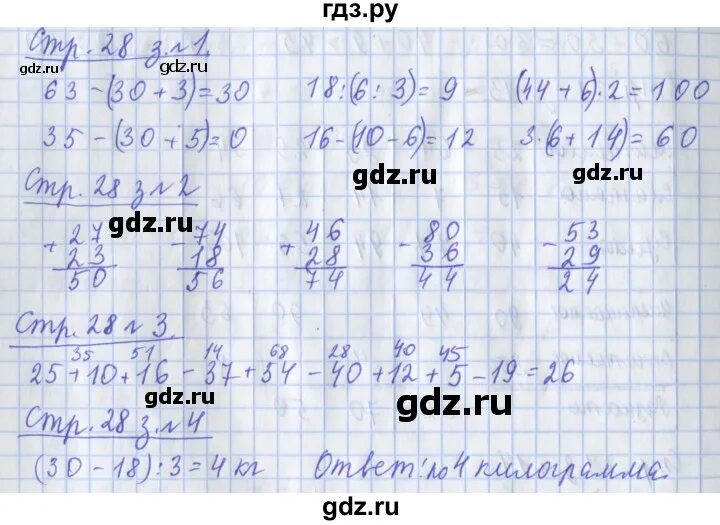 гдз.ру
Стр. 28 з.№1.
gdz.ru gdz.ru gdz.ru
63-(30+3)=30 18:(6:3)=9 (44+6)·2=100
35-(30+5)=0 16-(10-6)=12 3·(6+14)=60
Стр. 28 з№2
gdz.ru gdz.ru
gdz.ru
+27 -74 +46 -80 -53
23 18 28 36 29
50 56 74 44 24
gdz.ru gdz.ru
Стр. 28 № 3.
35 51 14 68 28 40 45
25+10+16-37+54-40+12+5-19=26
gdz.ru
gdz.ru
Стр. 28 з.№4
gdz.ru
(30-18):3=4 кг Ответ: по 4 килограмма.
gdz.ru gdz.ru
gdz.ru